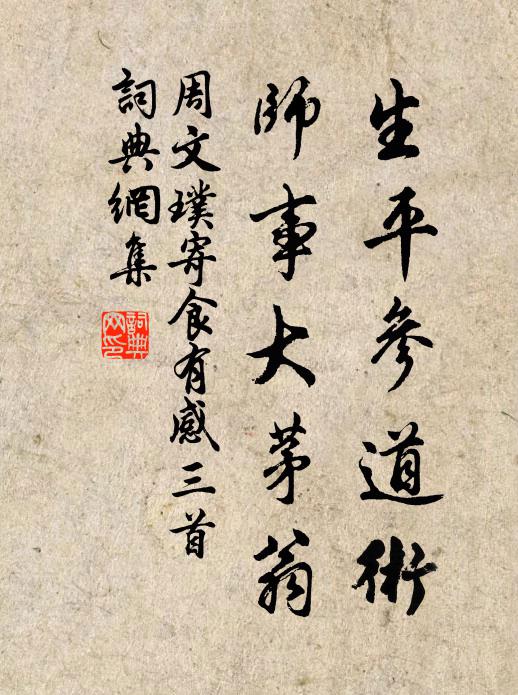 生平參道術
師事大茅翁
周文璞寄食有感三首
詞典網集
詞典
网印